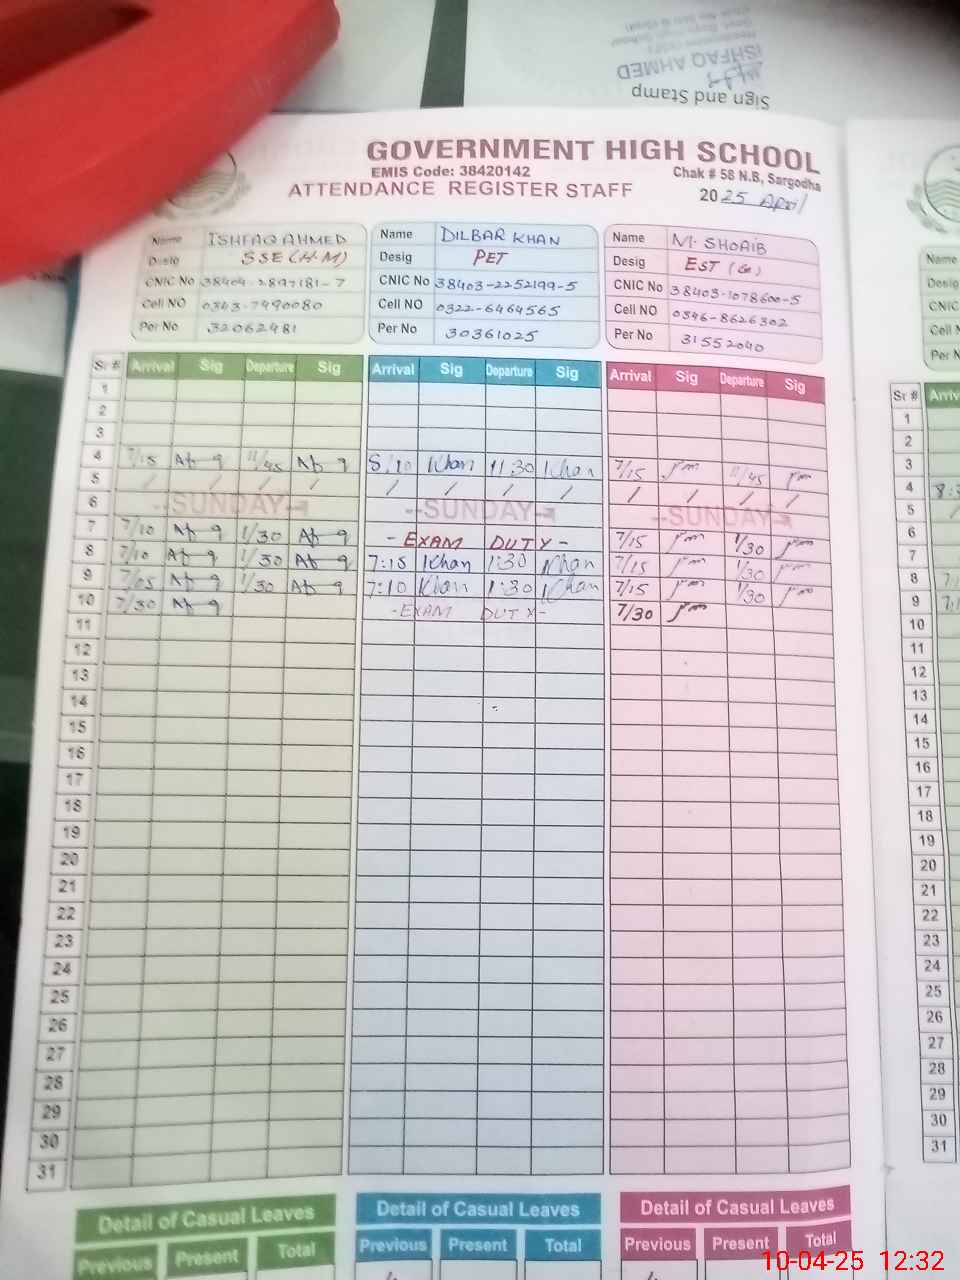 Sign and Stamp
ISHFAQ AHMED
GOVERNMENT HIGH SCHOOL
EMIS Code: 38420142
Chak # 58 N.B, Sargodha
ATTENDANCE REGISTER STAFF
2025 April
Name ISHFAQ AHMED
Desig SSE (H.M)
CNIC No 38404-2897181-7
Cell NO 0303-7990080
Per No 32062481
Name DILBAR KHAN
Desig PET
CNIC No 38403-2252199-5
Cell NO 0322-6464565
Per No 30361025
Name M. SHOAIB
Desig EST
CNIC No 38403-1078600-5
Cell NO 0346-8626302
Per No 31552040
Sr # Arrival Sig Departure Sig Arrival Sig Departure Sig Arrival Sig Departure Sig
1
2
3
4 7/15 11/45 8:10 Khan 11:30 Khan 7/15 11/45
5 / / / / / / / / / / / /
6 --SUNDAY-- --SUNDAY-- --SUNDAY--
7 7/10 1/30 - EXAM DUTY - 7/15 1/30
8 7/10 1/30 7:15 Khan 1:30 Khan 7/15 1/30
9 7/05 1/30 7:10 Khan 1:30 Khan 7/15 1/30
10 7/30 -EXAM DUTY- 7/30
11
12
13
14
15
16
17
18
19
20
21
22
23
24
25
26
27
28
29
30
31
Detail of Casual Leaves
Previous Present Total
Detail of Casual Leaves
Previous Present Total
Detail of Casual Leaves
Previous Present Total
Name
Desig
CNIC
Cell N
Per N
Sr # Arriv
1
2
3
4
5
6
7
8
9
10
11
12
13
14
15
16
17
18
19
20
21
22
23
24
25
26
27
28
29
30
31
10-04-25 12:32